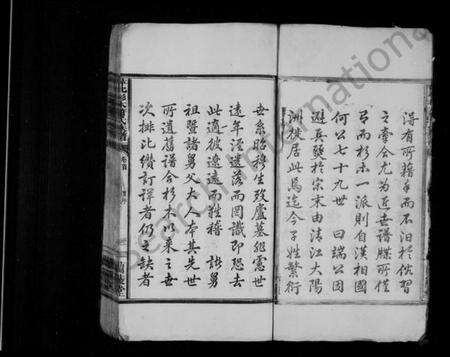 得有所藉手而不汩於俗習
之牽合尤為近世譜牒所僅
而杉木一派則自漢相國
何公七十九世 曰端公因
避兵燹於宋末由清江大陽
洲徙居此焉迄今子姓繁衍
世系昭穆生歿廬墓非憲世
遠年湮遺落而罔識即恐去
此適彼遼遠而難稽 諸舅
祖暨諸舅父大人本其先世
所遺舊譜合杉木 來之世
次排比纘訂詳者仍之缺者
International